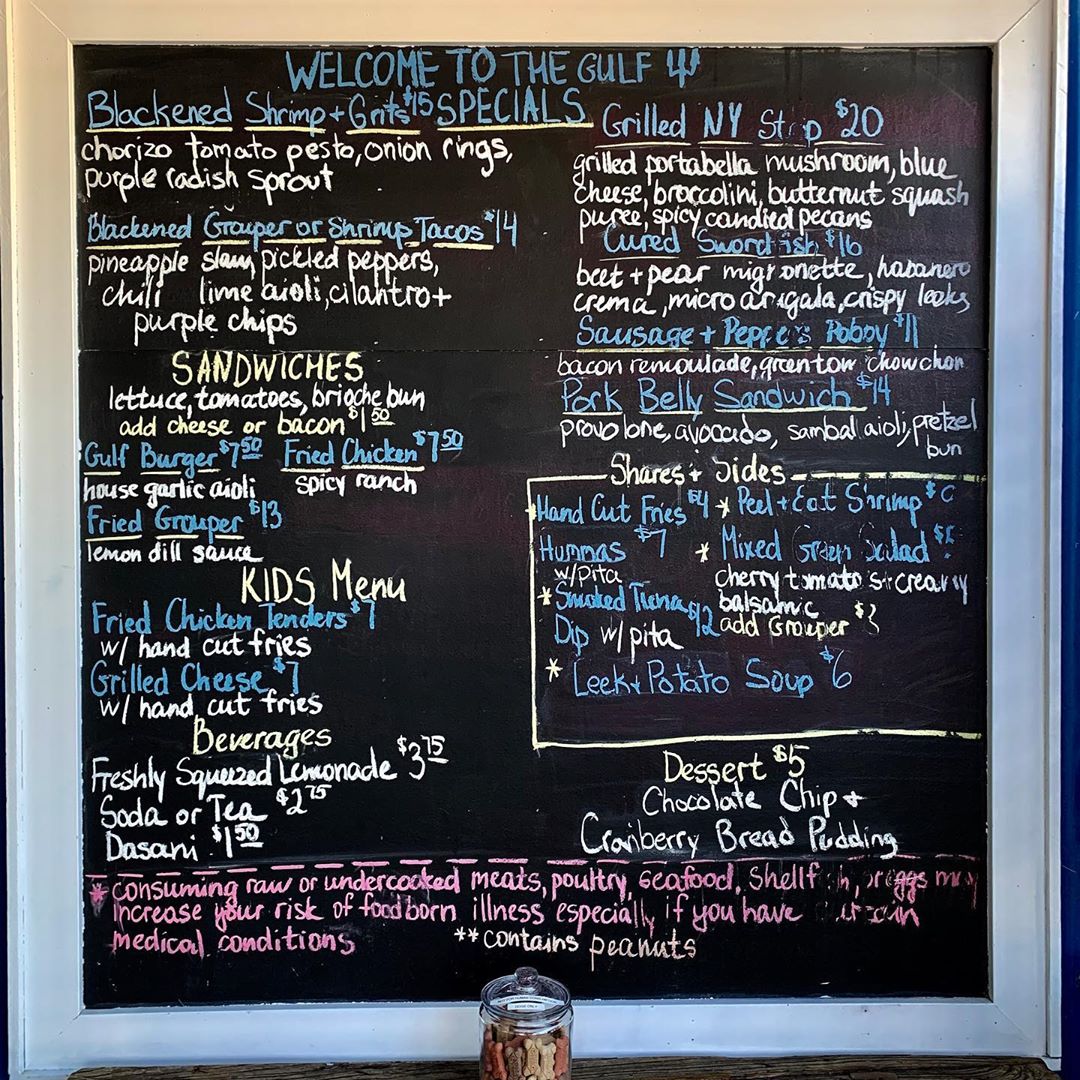 WELCOME TO THE GULF
Blackened Shrimp + Grits $15 SPECIALS
chorizo tomato pesto, onion rings,
purple radish sprout
Blackened Grouper or Shrimp Tacos $14
pineapple slaw, pickled peppers,
chili lime aioli, cilantro +
purple chips
SANDWICHES
lettuce, tomatoes, brioche bun
add cheese or bacon $1.50
Gulf Burger $7.50 Fried Chicken $7.50
house garlic aioli spicy ranch
Fried Grouper $13
lemon dill sauce
KIDS Menu
Fried Chicken Tenders $7
w/ hand cut fries
Grilled Cheese $7
w/ hand cut fries
Beverages
Freshly Squeezed Lemonade $3.75
Soda or Tea $2.75
Dasani $1.50
Grilled NY Strip $20
grilled portabella mushroom, blue
cheese, broccolini, butternut squash
puree, spicy candied pecans
Cured Swordfish $16
beet + pear mignonette, habanero
crema, micro arugala, crispy leeks
Sausage + Peppers Poboy $11
bacon remoulade, green tom chow chow
Pork Belly Sandwich $14
provolone, avocado, sambal aioli, pretzel
bun
Shares + Sides
Hand Cut Fries $4 * Peel + Eat Shrimp
Hummas $7 * Mixed Green Salad
w/pita cherry tomatos creamy
* Smoked Tuna $12 balsamic
Dip w/ pita add Grouper $3
* Leek + Potato Soup $6
Dessert $5
Chocolate Chip +
Cranberry Bread Pudding
* consuming raw or undercooked meats, poultry, seafood, Shellfish, or eggs may
increase your risk of foodborn illness especially if you have certain
medical conditions **contains peanuts